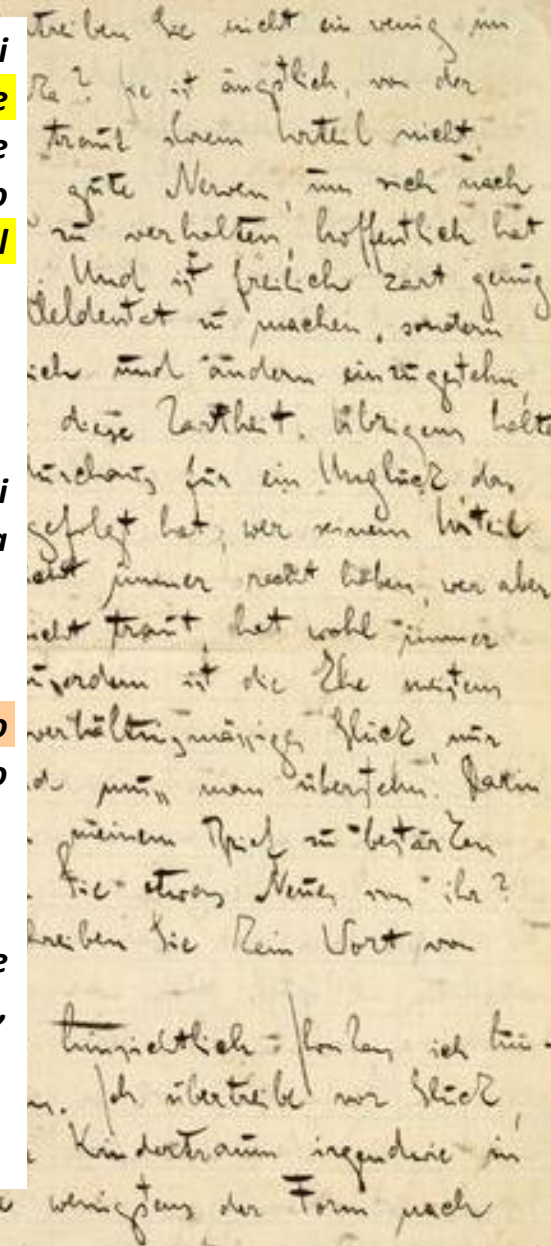 ntreiben Sie nicht ein wenig im
i
? Sie ist ängstlich, von der
e
traut ihrem Urteil nicht,
e
gute Nerven, um sich nach
o
zu verhalten, hoffentlich hat
l
Und ist freilich zart genug
Heldentat zu machen, sondern
sich und andern einzugestehn
diese Zartheit. Übrigens halte
durchaus für ein Unglück das
i
gefolgt hat; wer seinem Urteil
a
nicht immer recht haben, wer aber
nicht traut, hat wohl immer
ist die Ehe meistens
o
verhältnismässiges Glück, nur
o
muss man überstehn. Darin
meinem Brief zu bestärken
Sie etwas Neues von ihr?
e
hreiben Sie kein Wort von
,
ich
n. Ich übertreibe vor Glück,
Kindertraum irgendwie in
wenigstens der Form nach